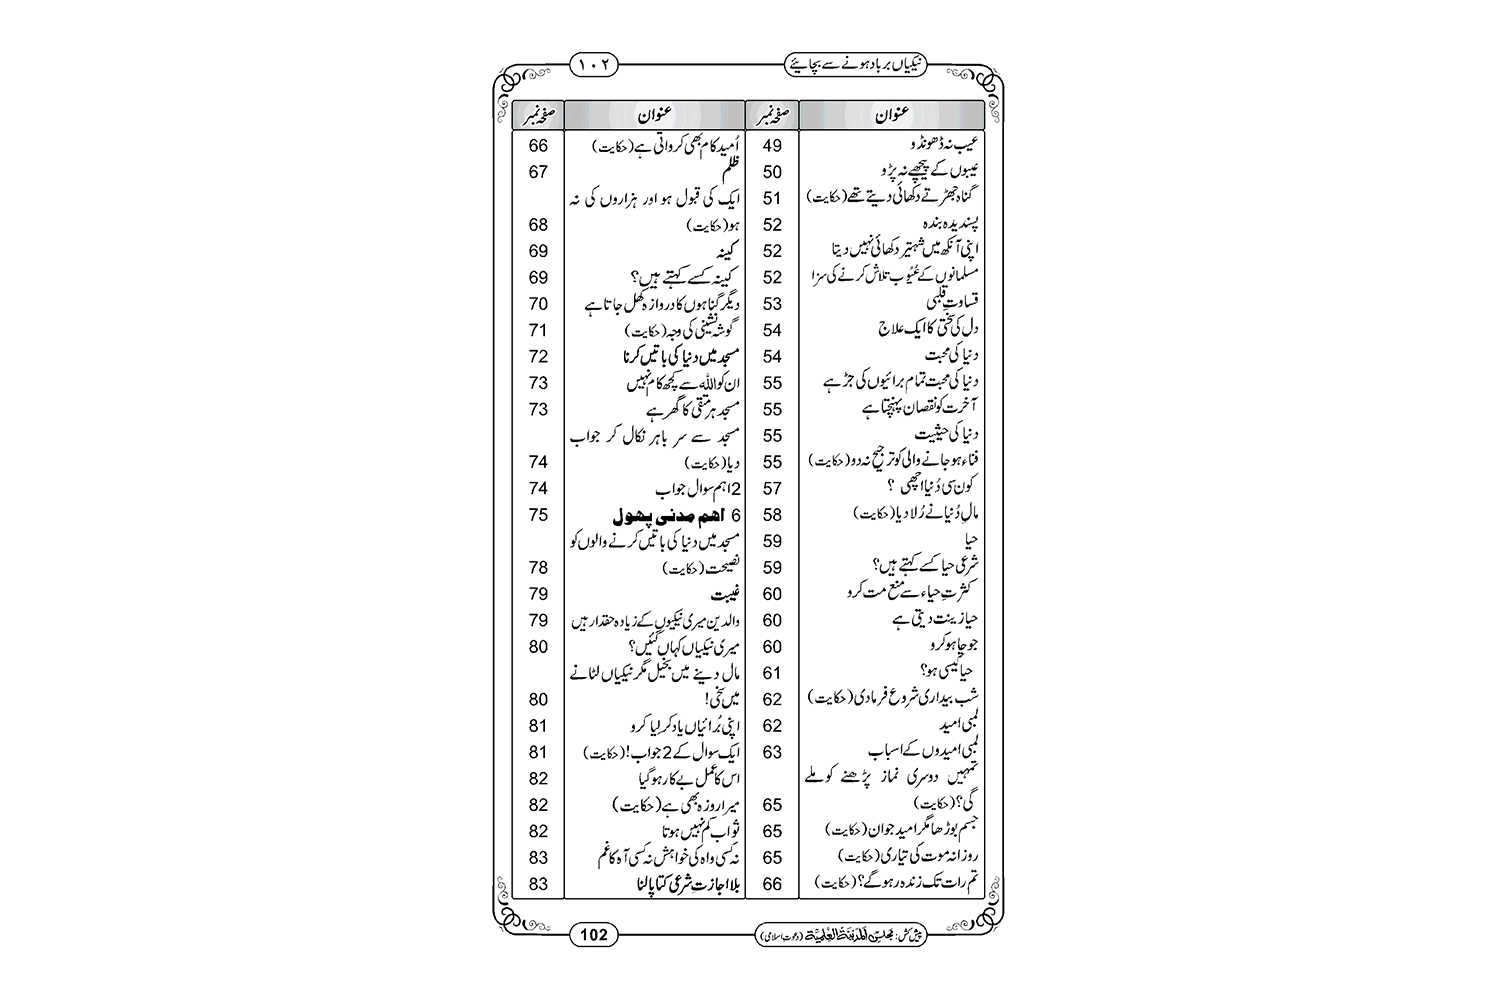 نیکیاں برباد ہونے سے بچائیے
۱۰۲
عنوان صفحہ نمبر
عیب نہ ڈھونڈو 49
عیبوں کے پیچھے نہ پڑو 50
گناہ جھڑتے دکھائی دیتے تھے (حکایت) 51
پسندیدہ بندہ 52
اپنی آنکھ میں شہتیر دکھائی نہیں دیتا 52
مسلمانوں کے عُیُوب تلاش کرنے کی سزا 52
قساوتِ قلبی 53
دل کی سختی کا ایک علاج 54
دنیا کی محبت 54
دنیا کی محبت تمام برائیوں کی جڑ ہے 55
آخرت کو نقصان پہنچتا ہے 55
دنیا کی حیثیت 55
فناء ہو جانے والی کو ترجیح نہ دو (حکایت) 55
کون سی دُنیا اچھی ؟ 57
مالِ دُنیا نے رُلا دیا (حکایت) 58
حیا 59
شرعی حیا کسے کہتے ہیں؟ 59
کثرتِ حیاء سے منع مت کرو 60
حیا زینت دیتی ہے 60
جو چاہو کرو 60
حیا کیسی ہو؟ 61
شب بیداری شروع فرما دی (حکایت) 62
لمبی امید 62
لمبی امیدوں کے اسباب 63
تمہیں دوسری نماز پڑھنے کو ملے
گی؟ (حکایت) 65
جسم بوڑھا مگر امید جوان (حکایت) 65
روزانہ موت کی تیاری (حکایت) 65
تم رات تک زندہ رہو گے؟ (حکایت) 66
عنوان صفحہ نمبر
اُمید کام بھی کرواتی ہے (حکایت) 66
ظلم 67
ایک کی قبول ہو اور ہزاروں کی نہ
ہو (حکایت) 68
کینہ 69
کینہ کسے کہتے ہیں؟ 69
دیگر گناہوں کا دروازہ کھل جاتا ہے 70
گوشہ نشینی کی وجہ (حکایت) 71
مسجد میں دنیا کی باتیں کرنا 72
ان کو اللہ سے کچھ کام نہیں 73
مسجد ہر متقی کا گھر ہے 73
مسجد سے سر باہر نکال کر جواب
دیا (حکایت) 74
2 اہم سوال جواب 74
6 اہم مدنی پھول 75
مسجد میں دنیا کی باتیں کرنے والوں کو
نصیحت (حکایت) 78
غیبت 79
والدین میری نیکیوں کے زیادہ حقدار ہیں 79
میری نیکیاں کہاں گئیں؟ 80
مال دینے میں بخیل مگر نیکیاں لٹانے
میں سخی! 80
اپنی بُرائیاں یاد کر لیا کرو 81
ایک سوال کے 2 جواب! (حکایت) 81
اس کا عمل بے کار ہو گیا 82
میرا روزہ بھی ہے (حکایت) 82
ثواب کم نہیں ہوتا 82
نہ کسی واہ کی خواہش نہ کسی آہ کا غم 83
بلا اجازتِ شرعی کتا پالنا 83
پیش کش: مجلس المدینۃ العلمیۃ (دعوتِ اسلامی)
102